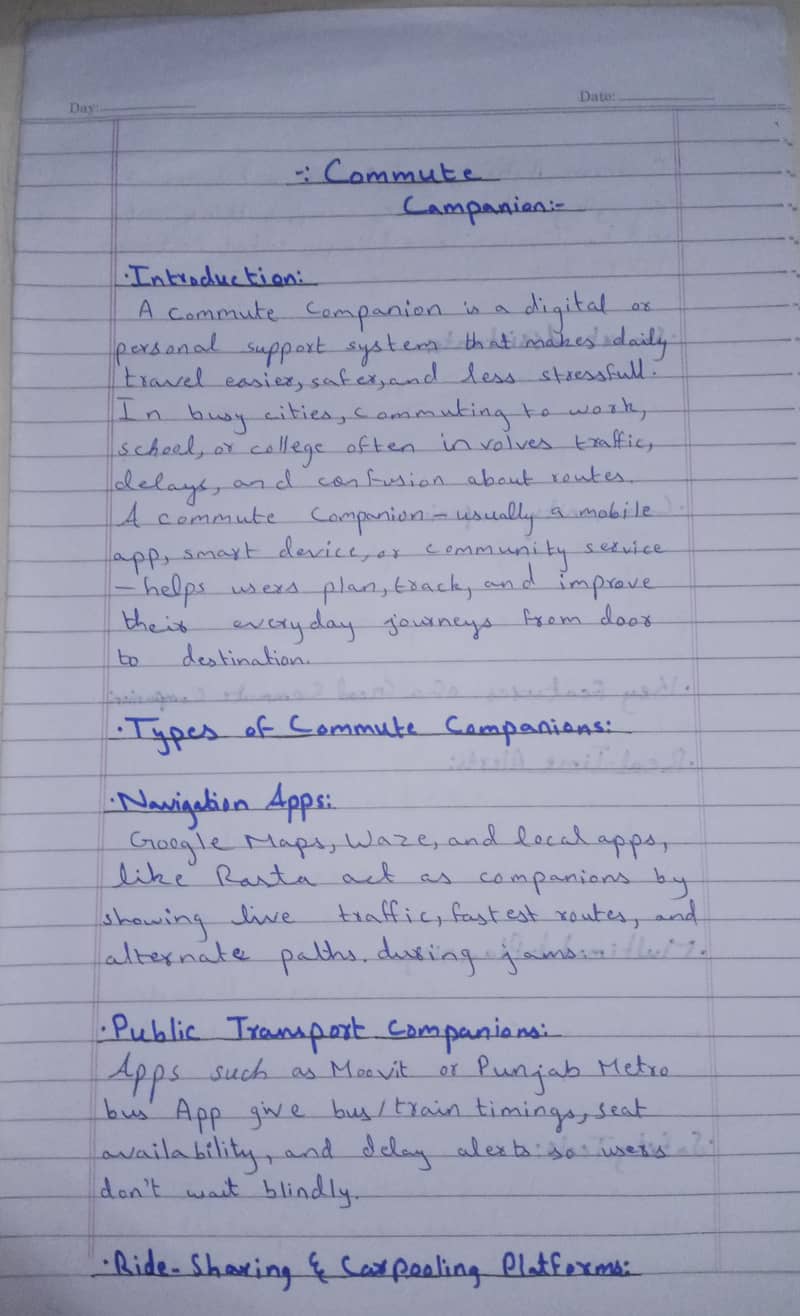 Day:
Date:
-: Commute
Companion:-
·Introduction:
A commute companion is a digital or
personal support system that makes daily
travel easier, safer, and less stressfull.
In busy cities, commuting to work,
school, or college often involves traffic,
delays, and confusion about routes.
A commute companion – usually a mobile
app, smart device, or community service
– helps users plan, track, and improve
their everyday journeys from door
to destination.
·Types of Commute Companions:
·Navigation Apps:
Google Maps, Waze, and local apps,
like Rasta act as companions by
showing live traffic, fastest routes, and
alternate paths. during jams.
·Public Transport Companions:
Apps such as Moovit or Punjab Metro
bus App give bus/train timings, seat
availability, and delay alerts so users
don't wait blindly.
·Ride-Sharing & Carpooling Platforms: